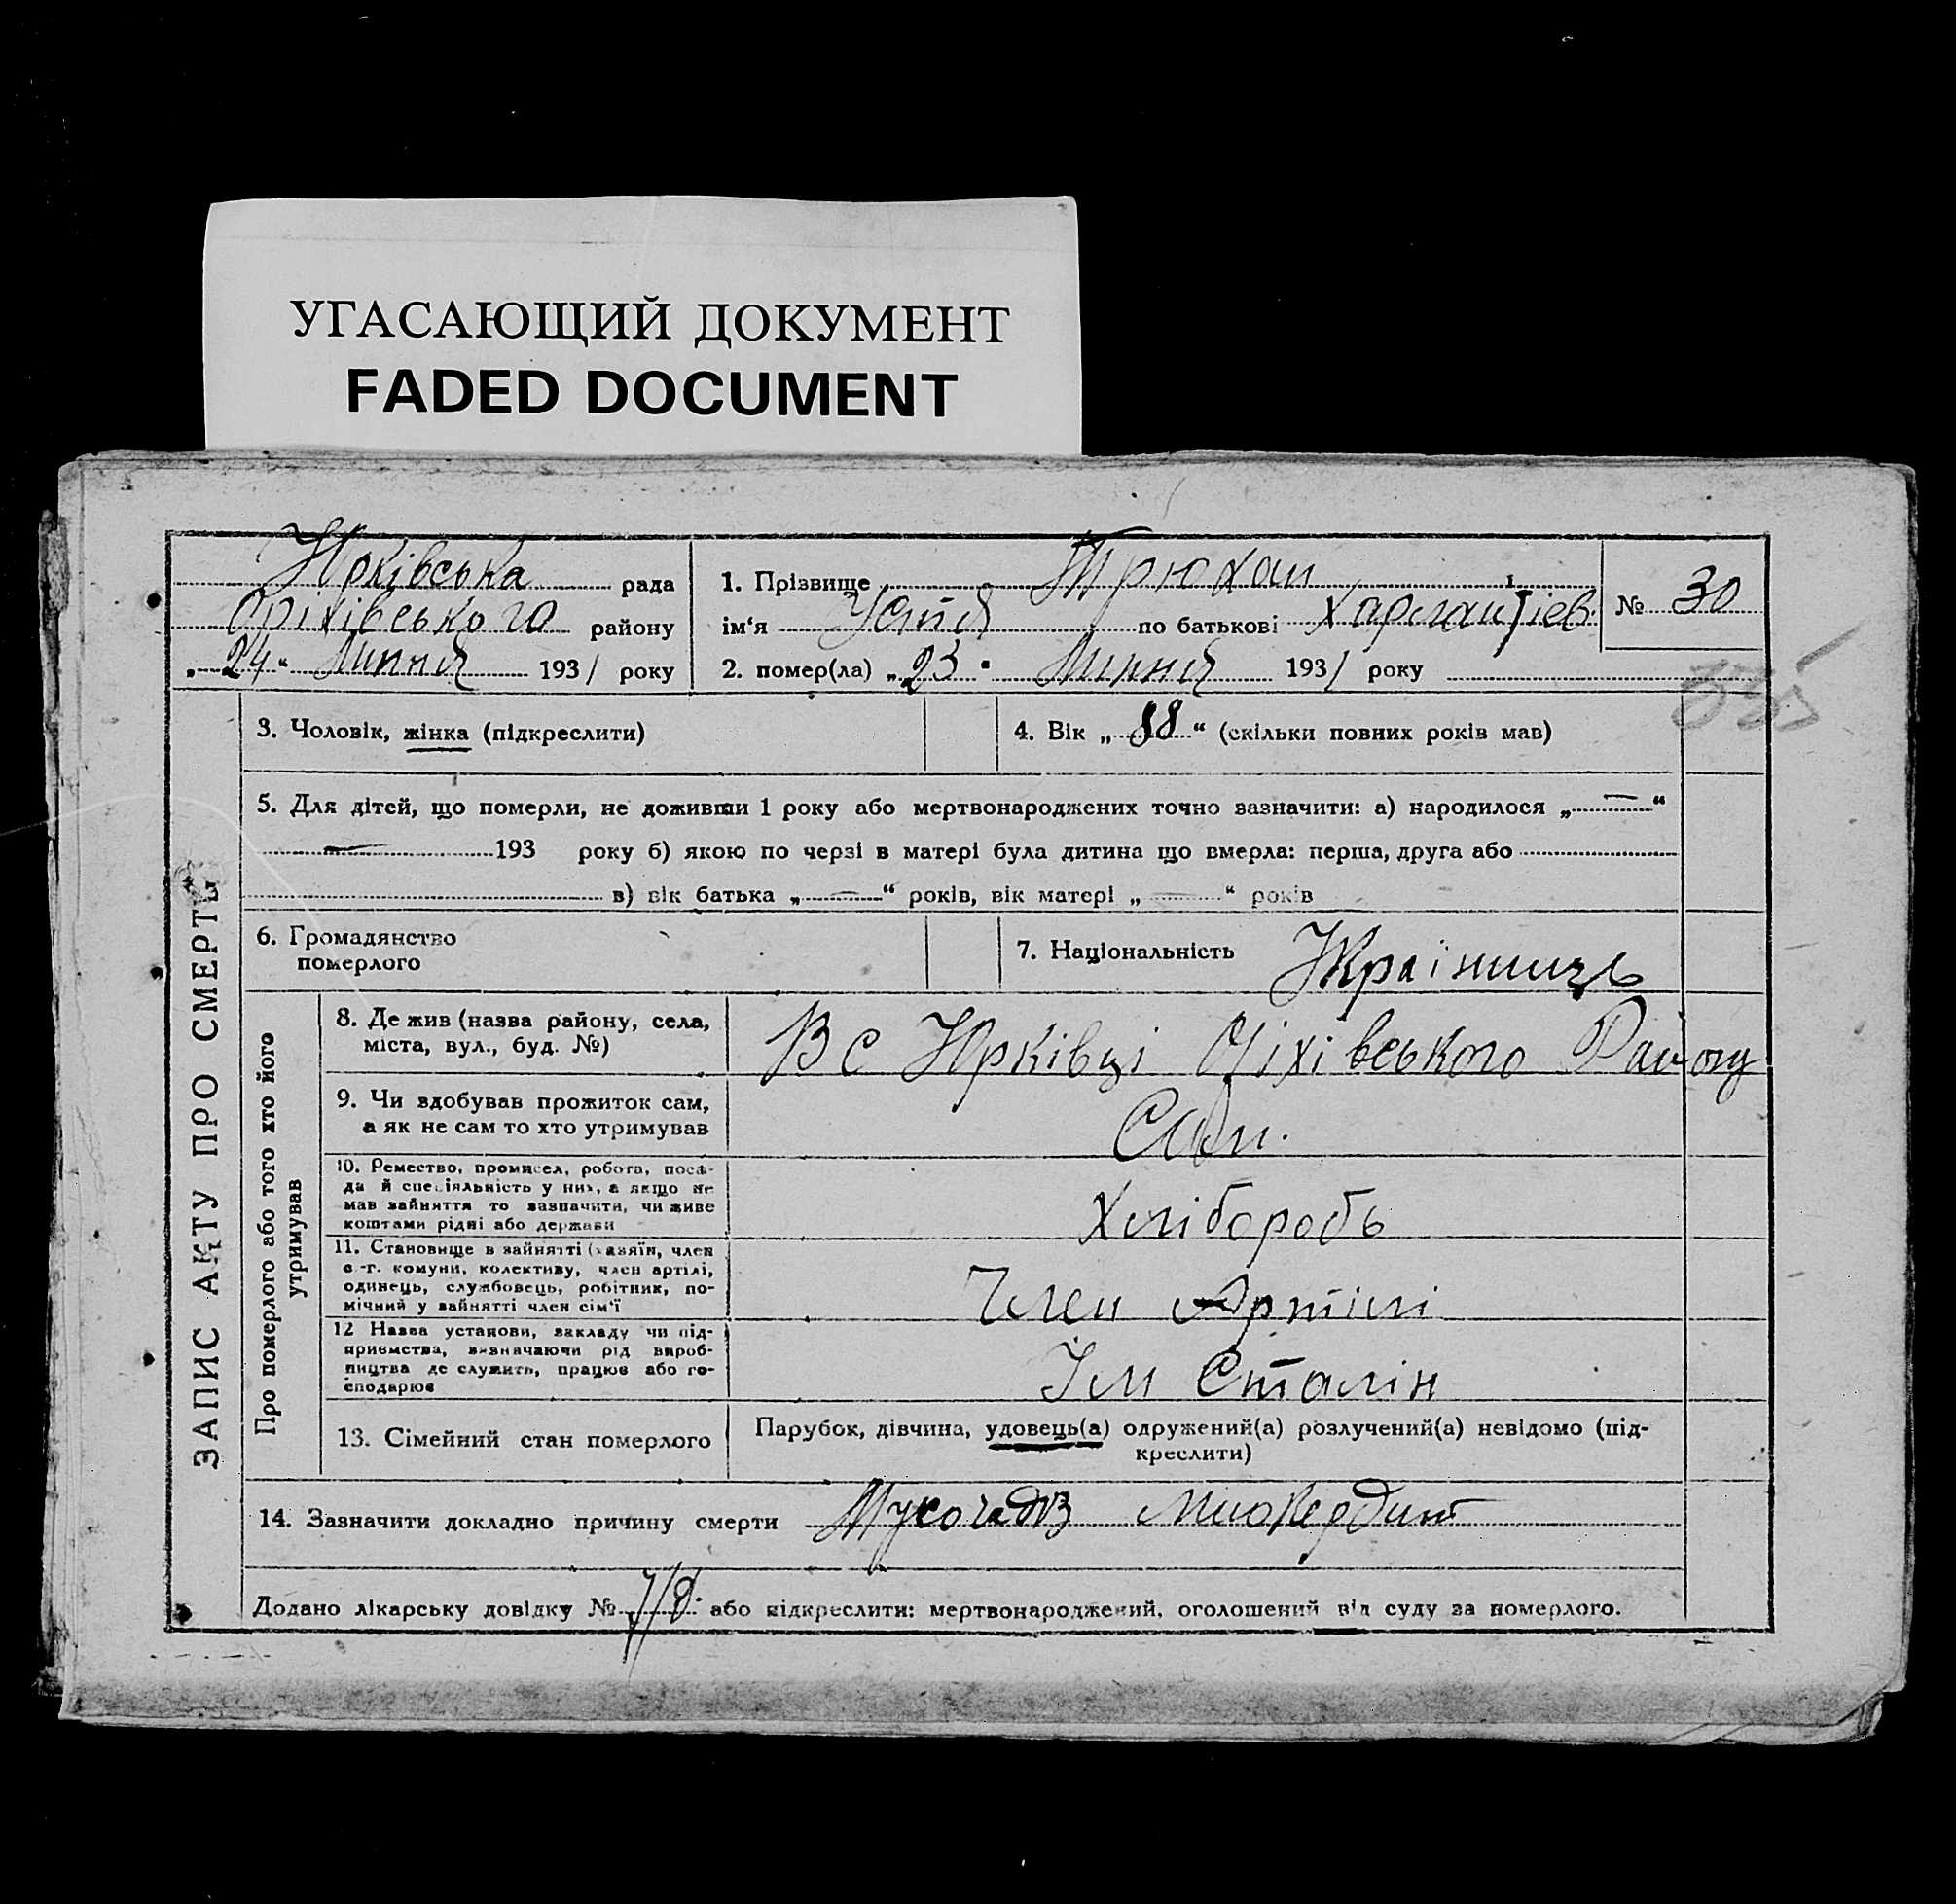 УГАСАЮЩИЙ ДОКУМЕНТ
FADED DOCUMENT
Юрківська рада
Оріхівського району
„24“ Липня 1931 року
1. Прізвище Трюхан
ім‘я Устя по батькові
2. помер(ла) „23“ Липня 1931 року
№ 30
335
ЗАПИС АКТУ ПРО СМЕРТЬ
3. Чоловік, жінка (підкреслити)
4. Вік „88“ (скільки повних років мав)
5. Для дітей, що померли, не доживши 1 року або мертвонароджених точно зазначити: а) народилося „—“
— 193 року б) якою по черзі в матері була дитина що вмерла: перша, друга або
в) вік батька „—“ років, вік матері „—“ років
6. Громадянство
померлого
7. Національність Україниць
Про померлого або того хто його
утримував
8. Де жив (назва району, села,
міста, вул., буд. №)
В с Юрківці Оріхівського Району
9. Чи здобував прожиток сам,
а як не сам то хто утримував
Сам.
10. Ремество, промисел, робота, поса-
да й спеціяльність у них, а якщо не
мав зайняття то зазначити, чи живе
коштами рідні або держави
Хліборобь
11. Становище в зайнятті (хазяїн, член
с.-г. комуни, колективу, член артілі,
одинець, службовець, робітник, по-
мічний у зайнятті член сім‘ї
Член Артілі
12 Назва установи, закладу чи під-
приємства, визначаючи рід вироб-
ництва де служить, працює або го-
сподарює
Ім Сталін
13. Сімейний стан померлого
Парубок, дівчина, удовець(а) одружений(а) розлучений(а) невідомо (під-
креслити)
14. Зазначити докладно причину смерти Миокердит
Додано лікарську довідку № або підкреслити: мертвонароджений, оголошений від суду за померлого.